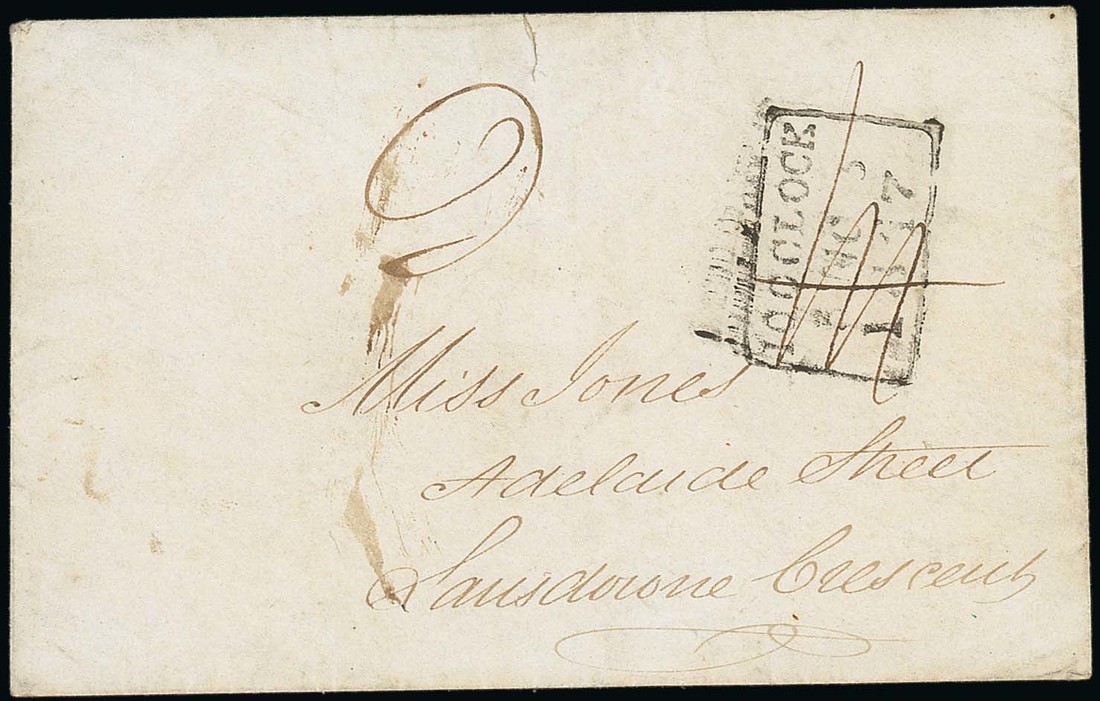 2
10 OCLOCK
1847
Miss Jones
Adelaide Street
Lansdowne Crescent